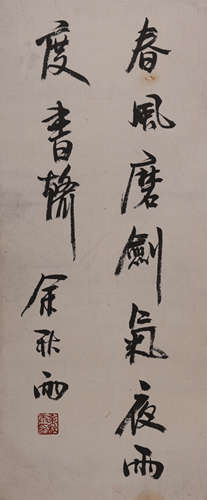 春風磨劍氣夜雨
度書轎
余秋雨